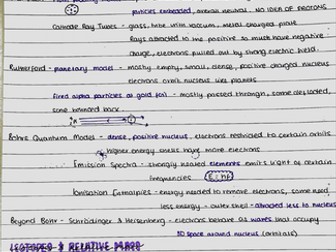 particles embedded, overall neutral. NO IDEA OF PROTONS
Cathode Ray Tubes - glass tube with vacuum, metal charged plate
Rays attracted to the positive so must have negative
charge, electrons pulled out by strong electric field.
Rutherford - planetary model - mostly empty, small, dense, positive charged nucleus
electrons orbit nucleus like planets
fired alpha particles at gold foil - mostly passed through, some deflected,
some bounced back.
Bohrs Quantum Model - dense, positive nucleus, electrons restricted to certain orbits
higher energy ones have more electrons
Emission Spectra - strongly heated elements emit light of certain
frequencies E = hf
Ionisation Enthalpies - energy needed to remove electrons, some need
less energy - outer shell - attracted less to nucleus
Beyond Bohr - Schrödinger & Heisenberg - electrons behave as waves that occupy
3D space around nucleus (orbitals)
ISOTOPES & RELATIVE MASS